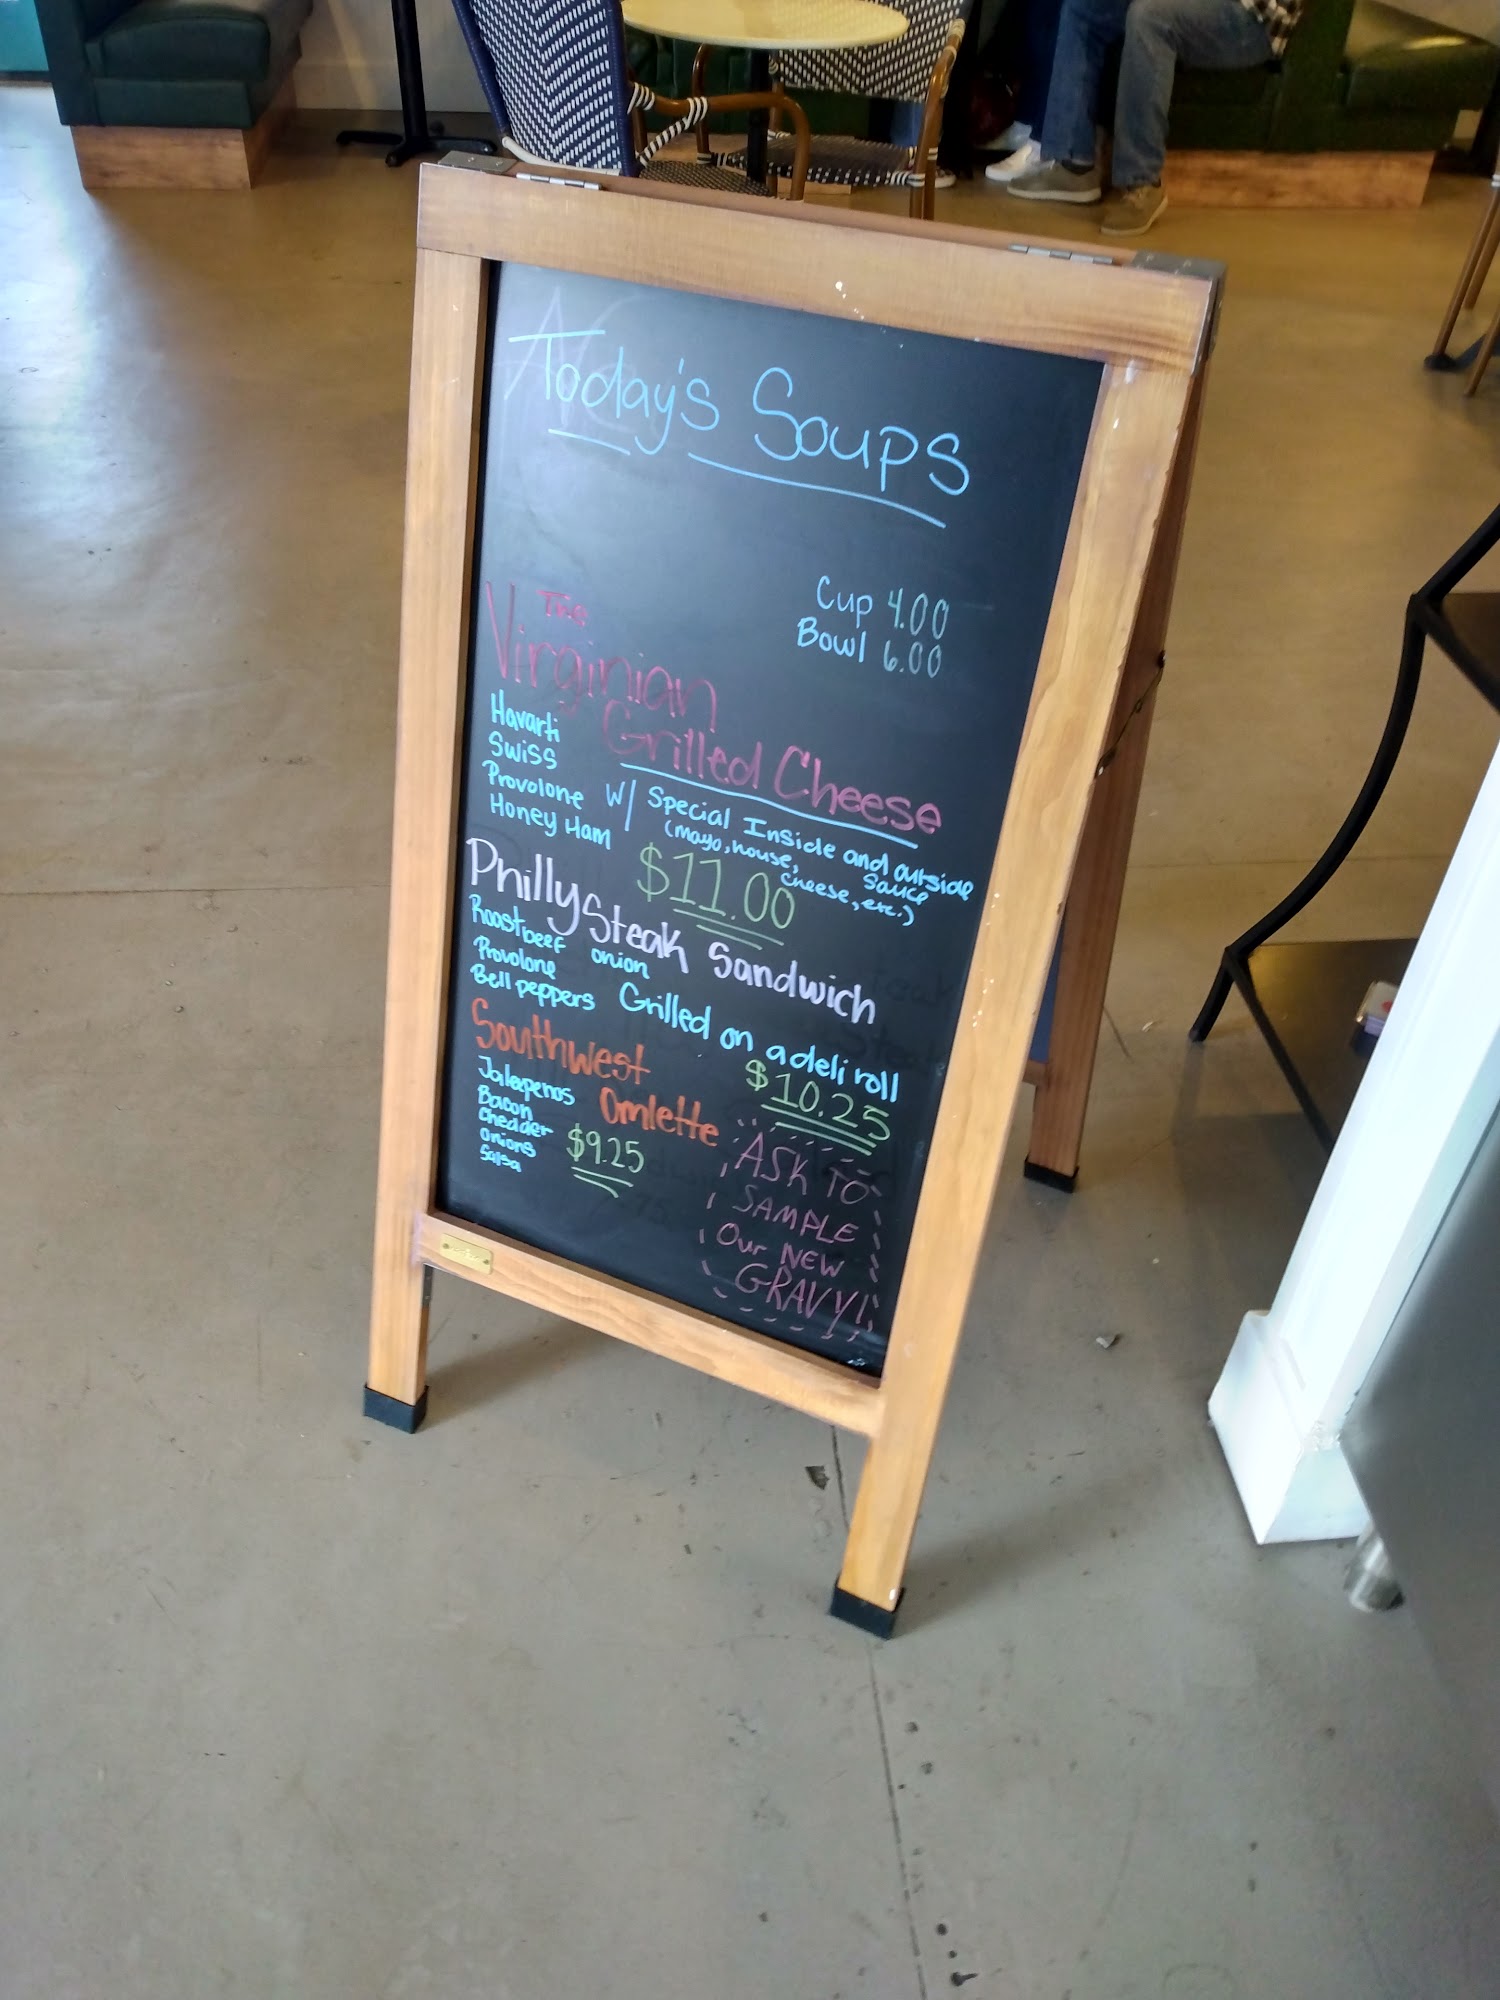 Today's Soups
Cup 4.00
Bowl 6.00
The
Virginian
Grilled Cheese
Havarti
Swiss
Provolone
Honey Ham
W/ Special Inside and outside
(mayo, house, sauce
cheese, etc.)
$11.00
Philly Steak Sandwich
Roastbeef
onion
Provolone
Bell peppers
Grilled on a deli roll
$10.25
Southwest
Omlette
Jalepenos
Bacon
Chedder
Onions
Salsa
$9.25
ASK TO
SAMPLE
Our NEW
GRAVY!